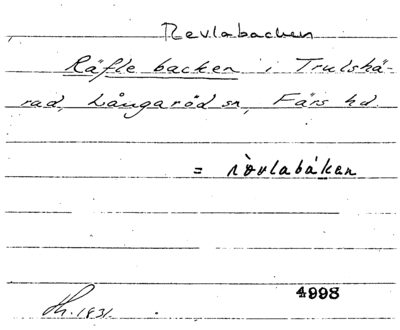 Revlabacken
Räfle backen i Trulshä-
rad, Långaröd sn, Färs hd.
= ròvlabákan
4998
1931.